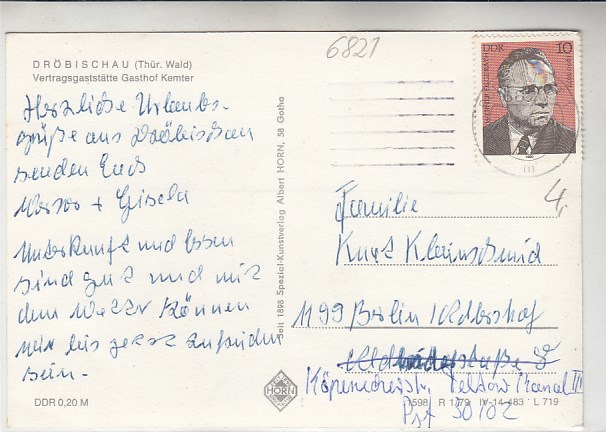 6821
DRÖBISCHAU (Thür. Wald)
Vertragsgaststätte Gasthof Kemter
Herzliche Urlaubs-
grüße aus Dröbischau
senden Euch
+ Gisela
Unterkunft und Essen
sind gut und mit
dem Wetter können
wir bis jetzt zufrieden
sein.
DDR 0,20 M
Seit 1898 Spezial-Kunstverlag Albert HORN, 58 Gotha
HORN
DDR 10
m
4,
Familie
Kurt Kleinschmid
1199 Berlin Adlershof
Köpenickerstr. Teltow Kanal III
Psf 30102
1598 R 1/79 IV-14-483 L 719